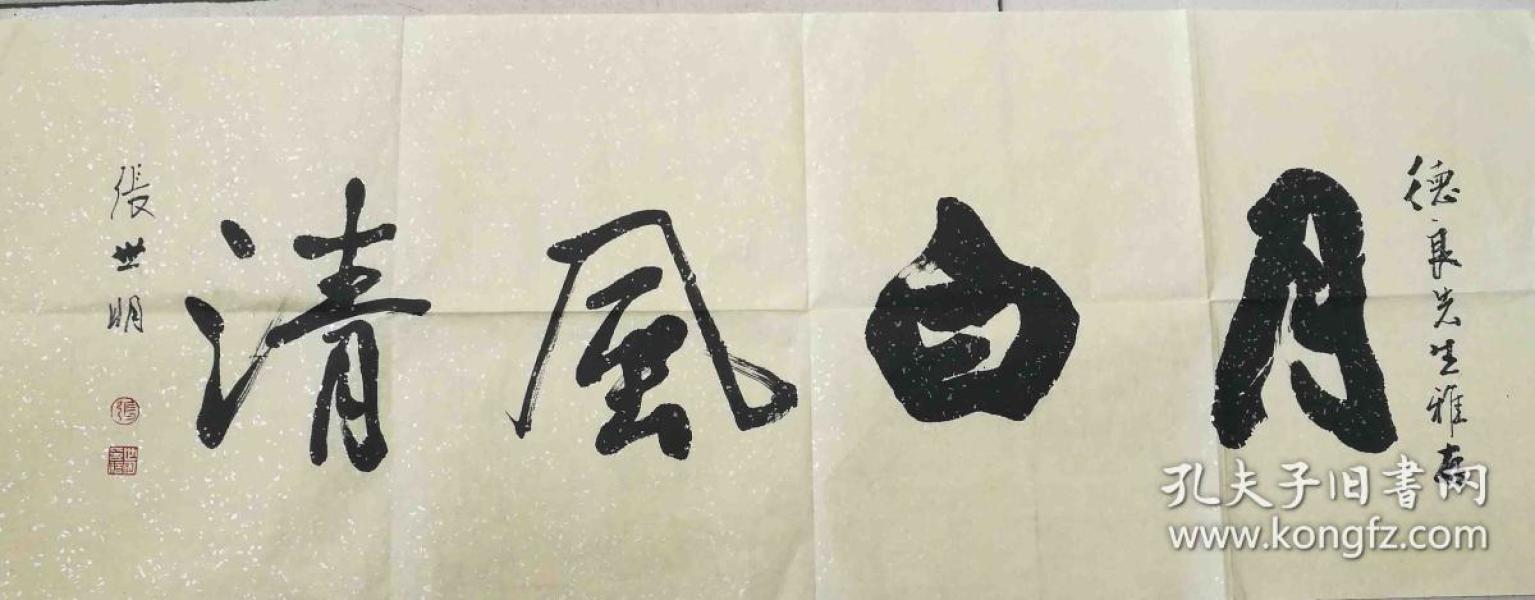 德良先生雅
月白風清
張世明
張
孔夫子旧書网
www.kongfz.com